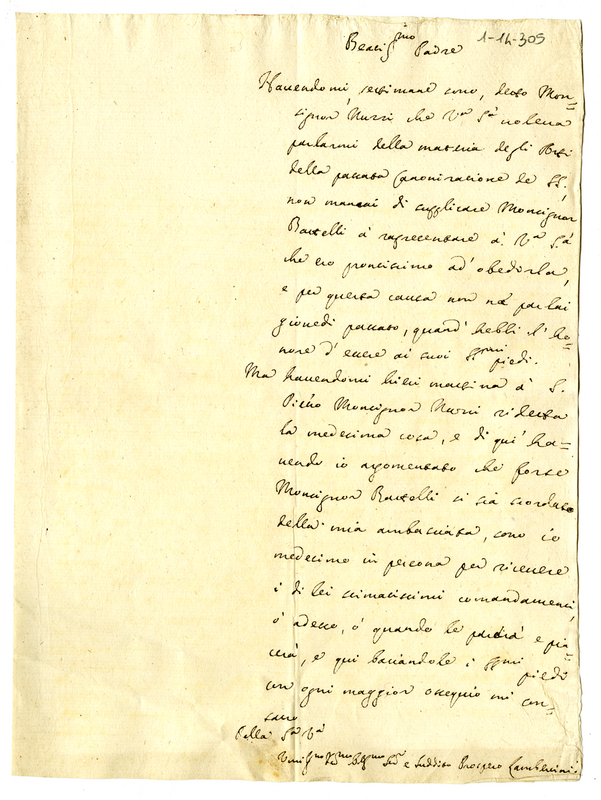 1-14-305
Beatiss.mo Padre
Havendomi, settimane sono, detto Mon=
signor Nunzi che V.ra S.tà voleva
parlarmi della materia degli
della passata Canonizazione de' SS.,
non mancai di supplicare Monsignor
Battelli à rapresentare à V.ra S.tà
che ero prontissimo ad' obedirla,
e per questa causa non né parlai
giovedi passato, quand' hebbi l' ho=
nore d' essere ai suoi SS.mi piedi.
Ma havendomi hieri mattina à S.
Pietro Monsignor Nunzi ridetta
la medesima cosa, e di qui' ha=
vendo io argomentato che forse
Monsignor Battelli si sia scordato
della mia ambasciata, sono io
medesimo in persona per ricevere
i di lei stimatissimi comandamenti,
ó adesso, ó quando le parerà e pia=
cerà, e qui baciandole i SS.mi piedi
con ogni maggior ossequio mi con=
sacro
Della S.tà V.ra
e Suddito Prospero Lambertini